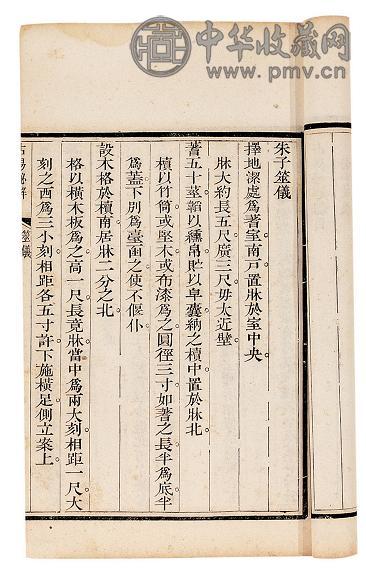 中华收藏网
www.pmv.cn
朱子筮儀
擇地潔處為蓍室南戶置牀於室中央
牀大約長五尺廣三尺毋太近壁
蓍五十莖韜以纁帛貯以皁囊納之櫝中置於牀北
櫝以竹筒或堅木或布漆為之圓徑三寸如蓍之長半為底半
為蓋下別為臺函之使不偃仆
設木格於櫝南居牀二分之北
格以橫木板為之高一尺長竟牀當中為兩大刻相距一尺大
刻之西為三小刻相距各五寸許下施橫足側立案上
筮儀